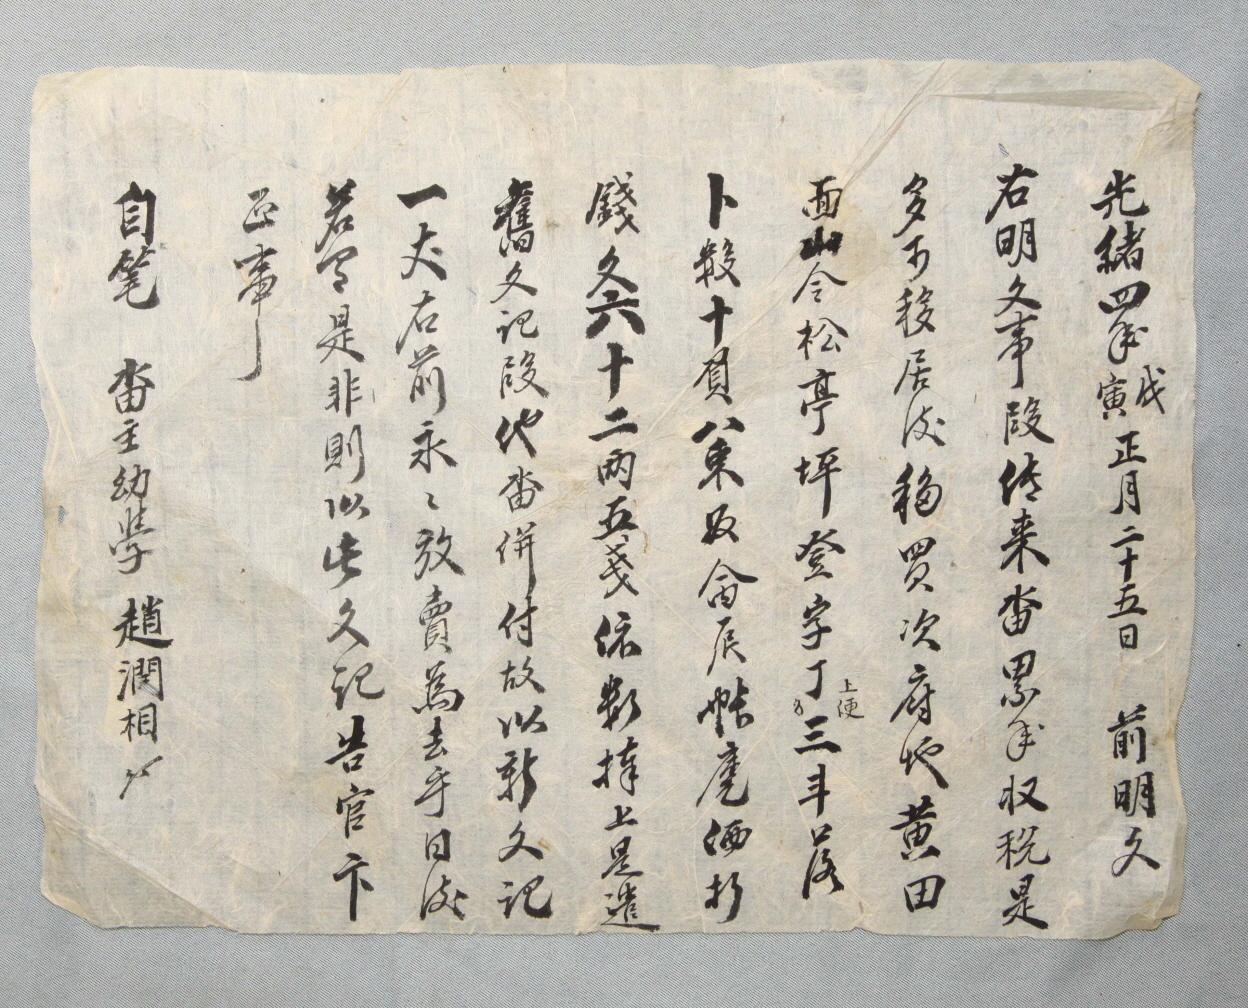 光緒四年戊寅正月二十五日 前明文
右明文事段傳来畓累年收稅是
多可移居次移買次府地黄田
面山令松亭坪登字丁上便三斗落
卜數十負八束㐣畓庫帳庫価折
錢文六十二兩五戔依數捧上是遣
舊文記段他畓併付故以新文記
一丈右前永〻放賣為去乎日後
若有是非則以此文記告官卞
正事
自筆 畓主幼學 趙潤相